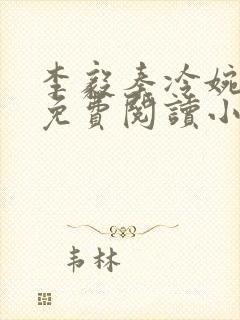 李毅秦冷婉
免費閱讀小
韦林